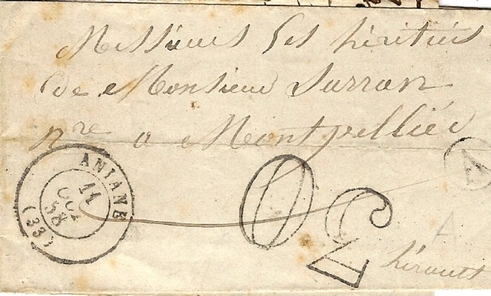 Messieurs les héritiers
de Monsieur Sarran
nre a Montpellier
ANIANE
11
OCT
58
(33)
30
A
hérault